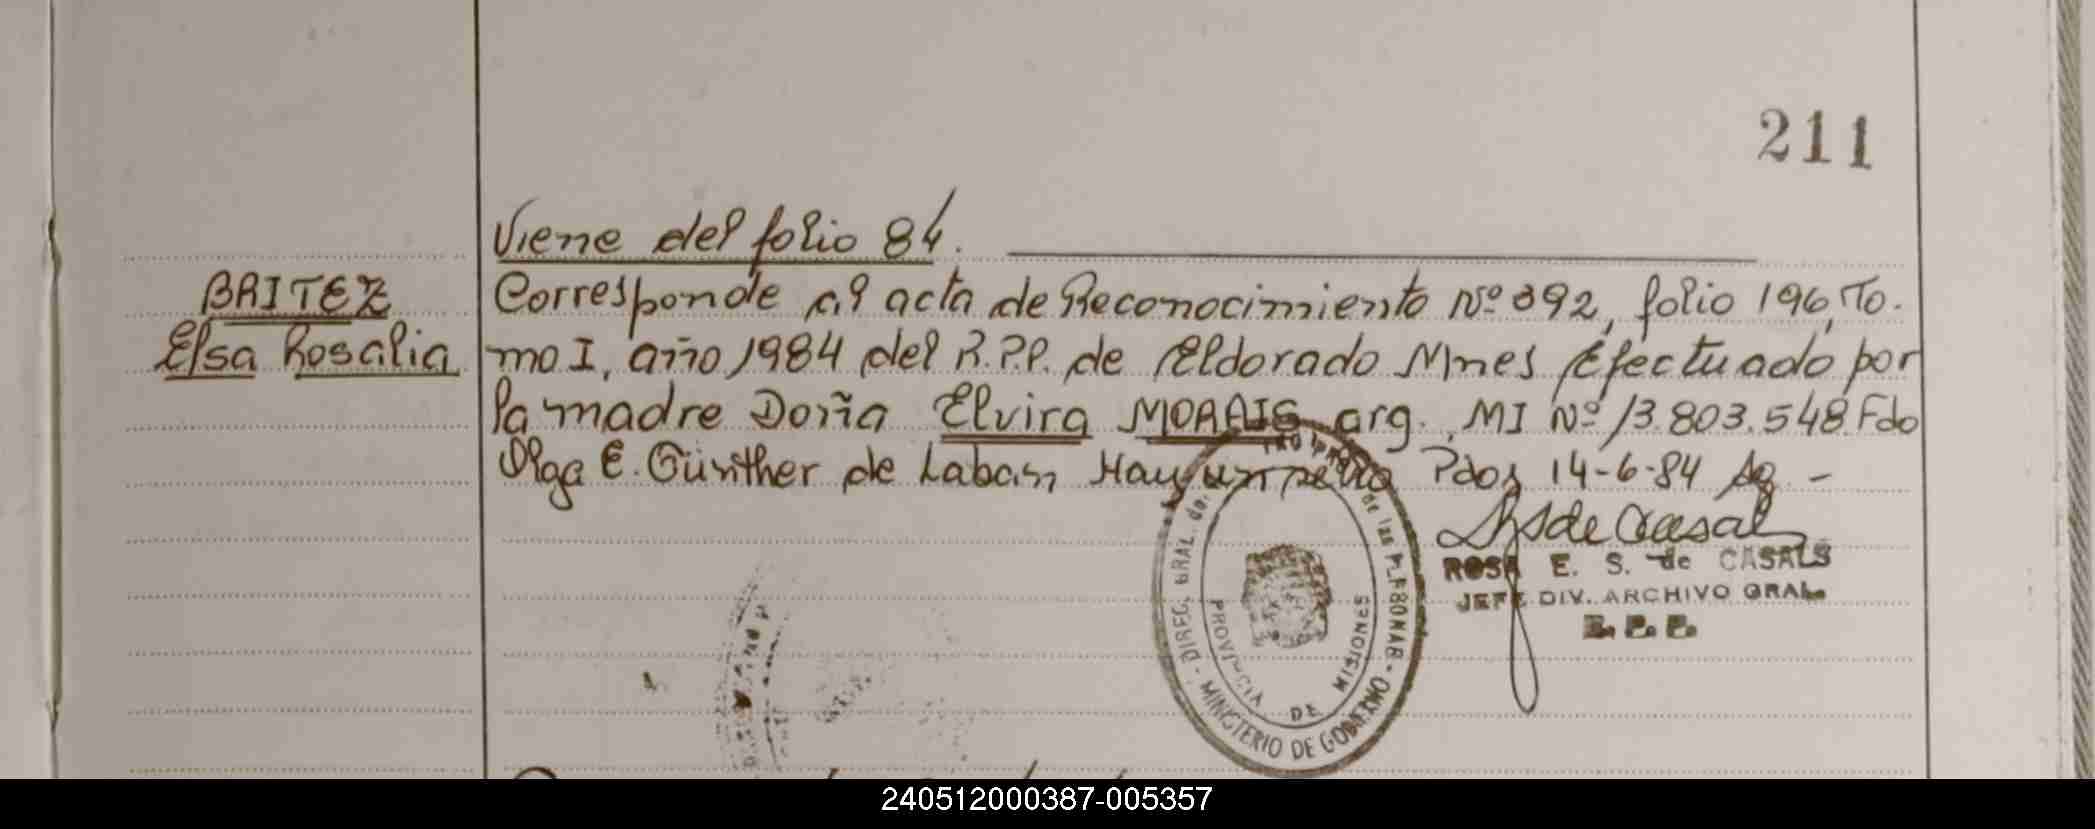 211
Viene del folio 84.
BRITEZ
Elsa Rosalia
Corresponde al acta de Reconocimiento Nº 392, folio 196, To-
mo I, año 1984 del R.P.P. de Eldorado Mnes Efectuado por
la madre Doña Elvira MORAIS arg. MI Nº 13.803.548 Fdo
Olga E. Günther de Laban Hay un sello Pdas 14-6-84
de Casals
ROSA E. S. de CASALS
JEFE DIV. ARCHIVO GRAL.
DIREC. GRAL. del de las P.
MINISTERIO DE GOBIERNO
PROVINCIA DE MISIONES
240512000387-005357